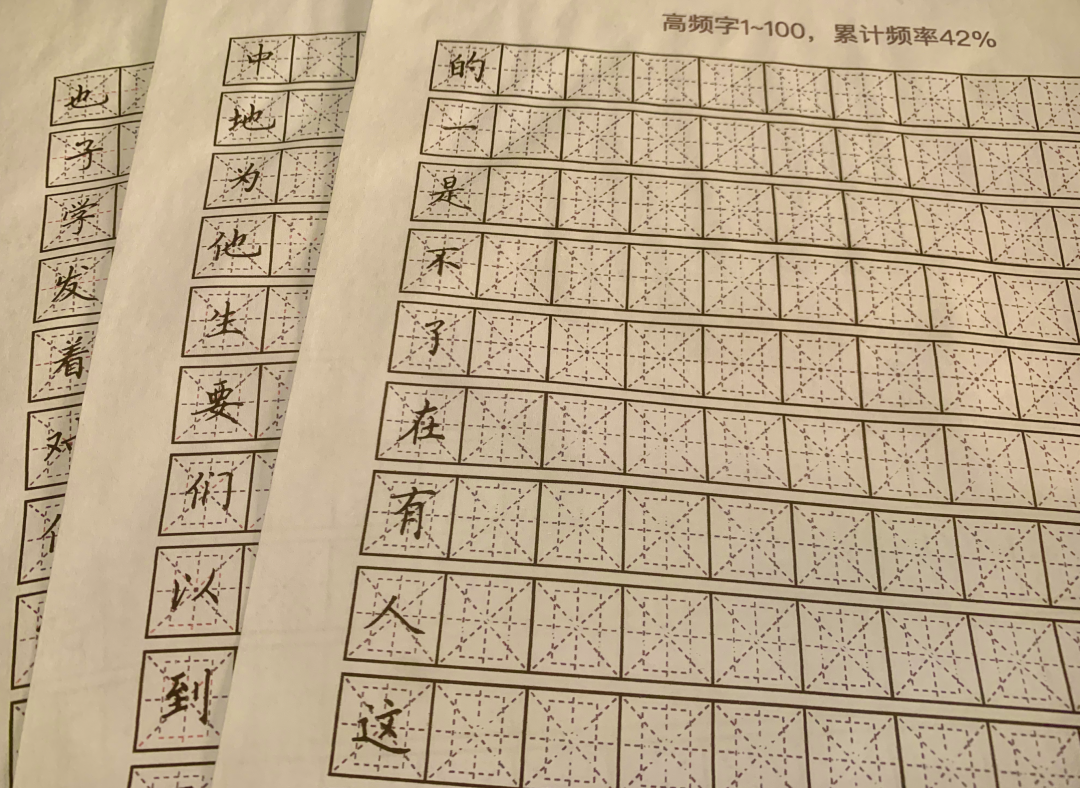 高频字1~100，累计频率42%
的
一
是
不
了
在
有
人
这
中
地
为
他
生
要
们
以
到
也
子
学
发
着
对